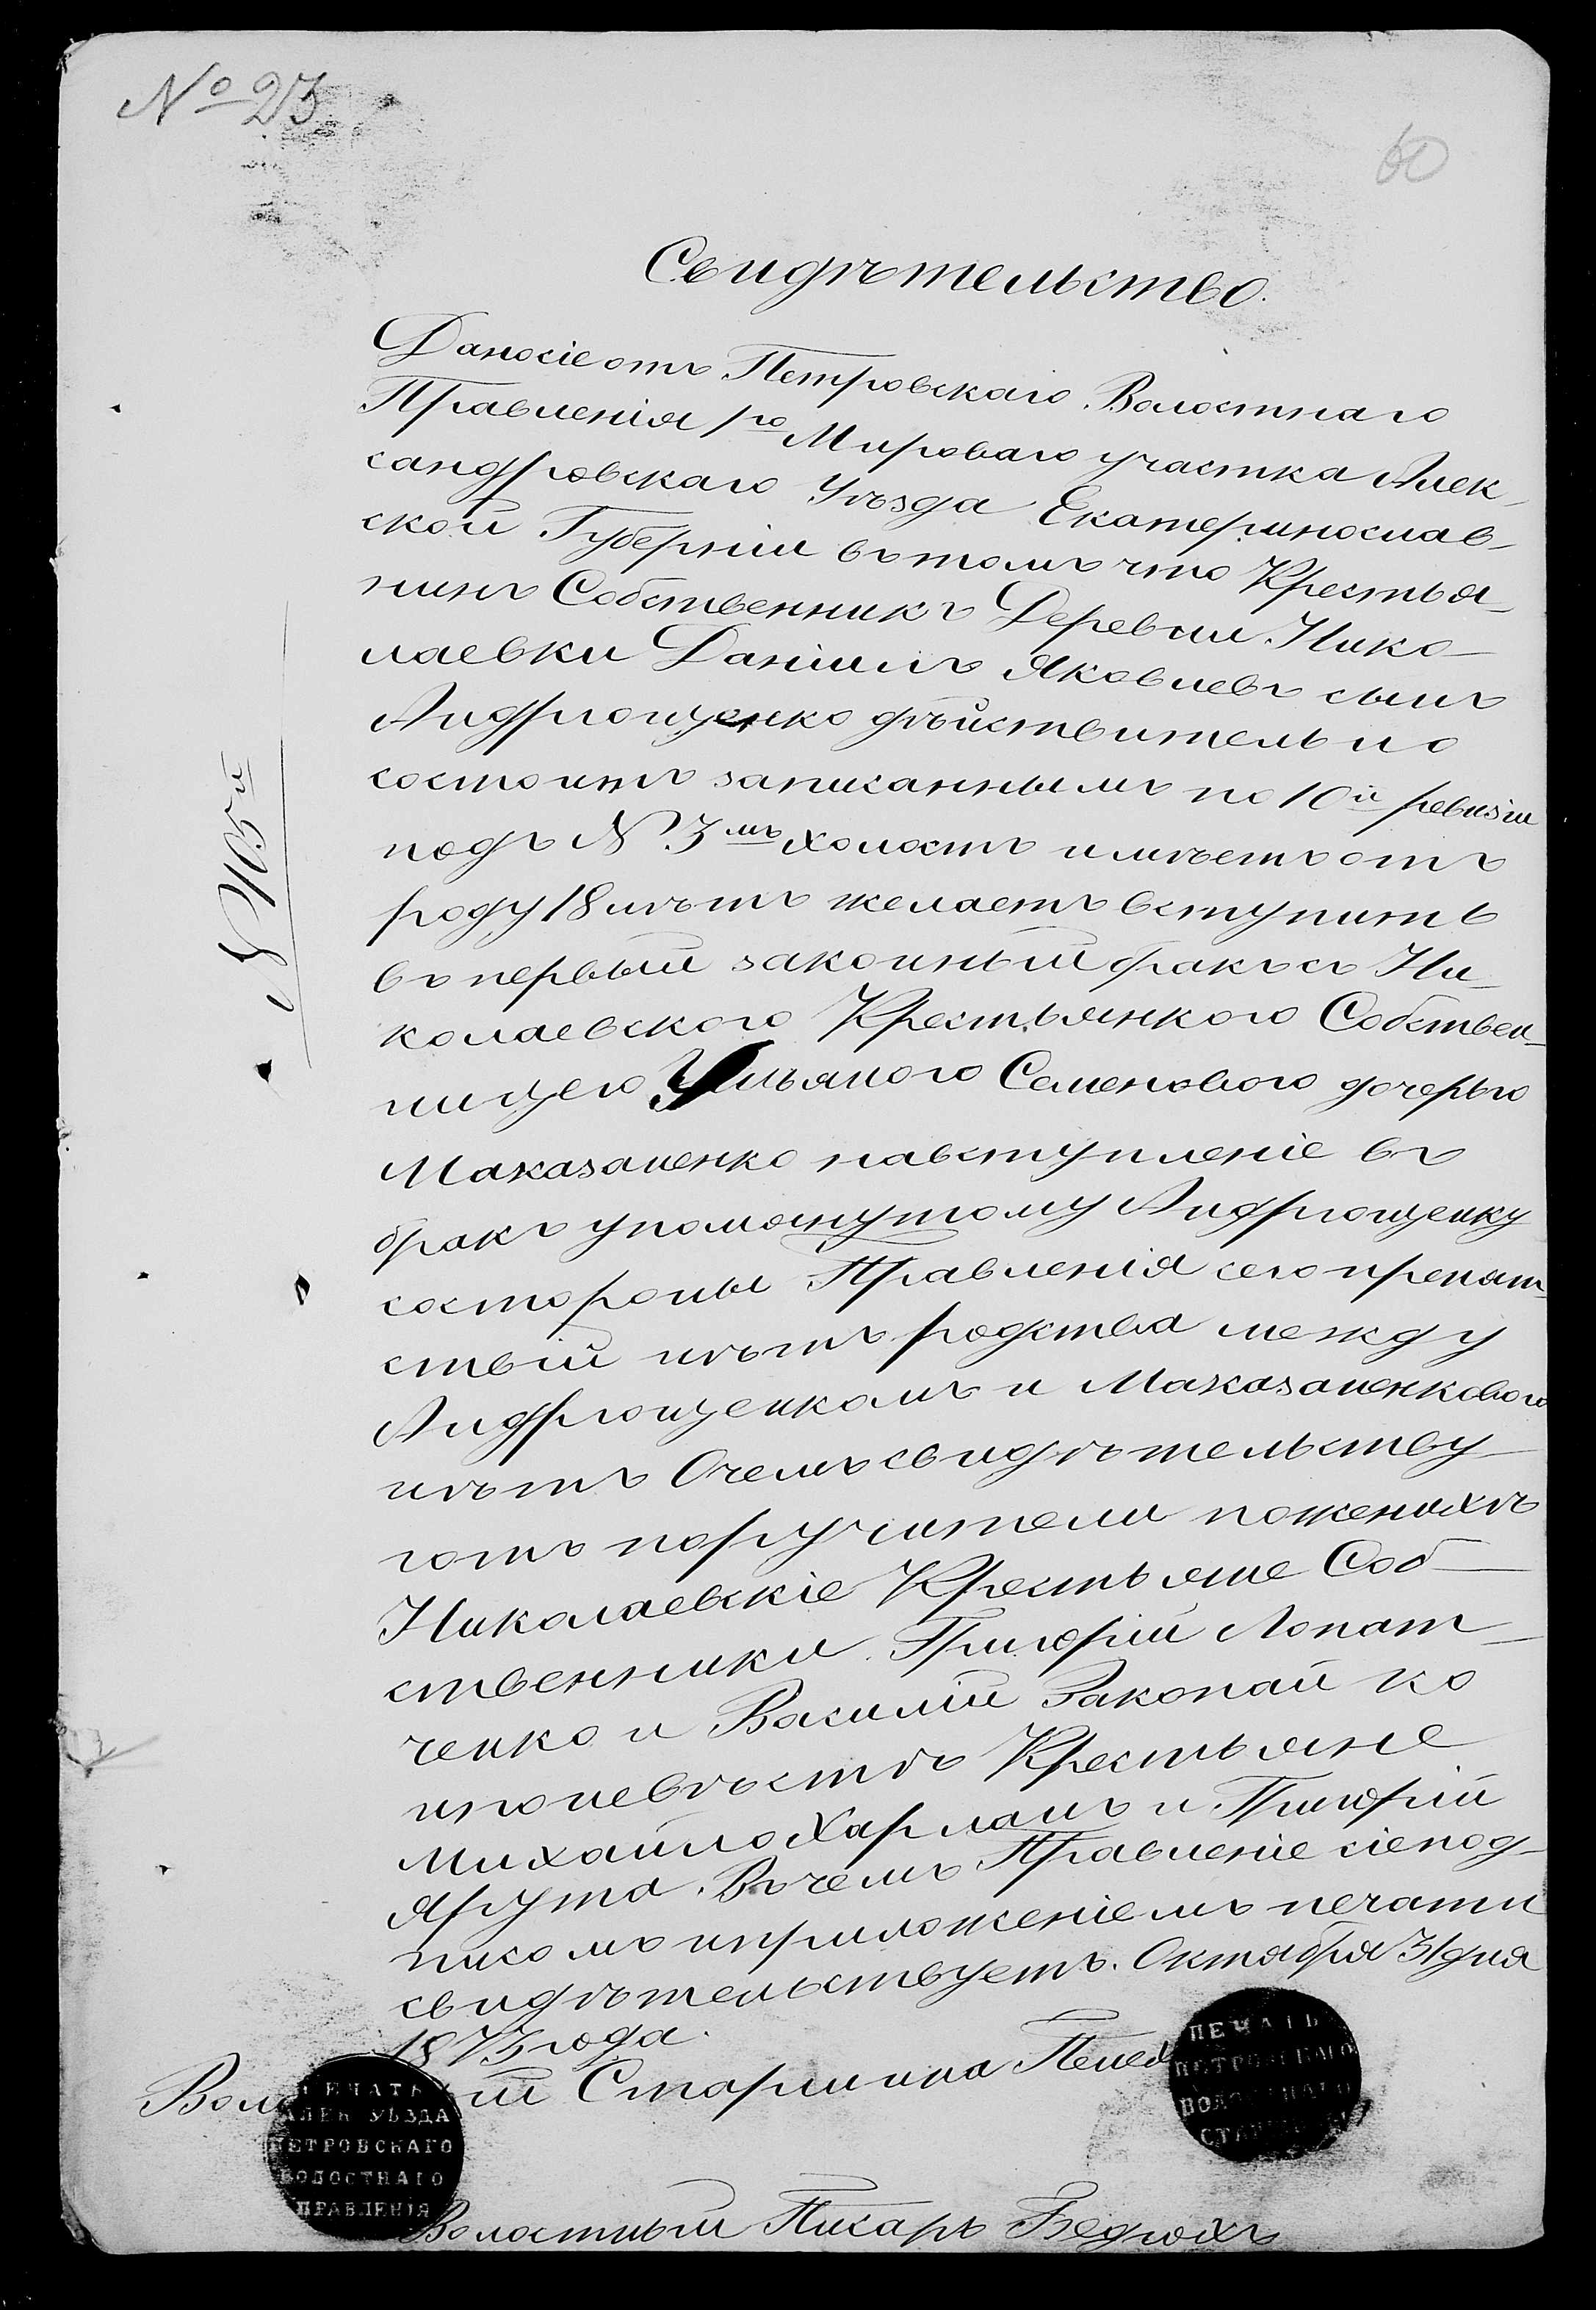 № 23
60
Свидѣтельство.
Дано сіе отъ Петровскаго Волостнаго
Правленія 1го Мироваго участка Алек-
сандровскаго Уѣзда Екатеринослав-
ской Губерніи въ томъ что Крестья-
нинъ Собственникъ Деревни Нико-
лаевки Даніилъ Яковлевъ сынъ
Андрющенко дѣйствительно
состоитъ записаннымъ по 10й ревизіи
подъ № 3мъ холостъ имѣетъ отъ
роду 18 лѣтъ желаетъ вступить
въ первый законный бракъ съ Ни-
колаевского Крестьянкого Собствен-
ницею Ульяною Семеновою дочерью
Маказаненко на вступленіе въ
бракъ упомянутому Андрющенку
состороны Правленія сего препят-
ствій нѣтъ родства между
Андрющенкомъ и Маказаненковою
нѣтъ О чемъ свидѣтельству-
ютъ поручители по женихѣ
Николаевскіе Крестьяне Соб-
ственники Григорій Лопат-
ченко и Василій Закопайко
и по невѣстѣ Крестьяне
Михайло Харламъ и Григорій
Ярута. Въ чемъ Правленіе сіе под-
писомъ и приложеніемъ печати
свидѣтельствуетъ. Октября 31 дня
1873 года.
№ 405й
Старшина
ПЕЧАТЬ
ПЕТРОВСКАГО
ВОЛОСТНАГО
ПЕЧАТЬ
АЛЕК УѢЗДА
ПЕТРОВСКАГО
ВОЛОСТНАГО
ПРАВЛЕНІЯ
Волостный Писарь Бедрохъ